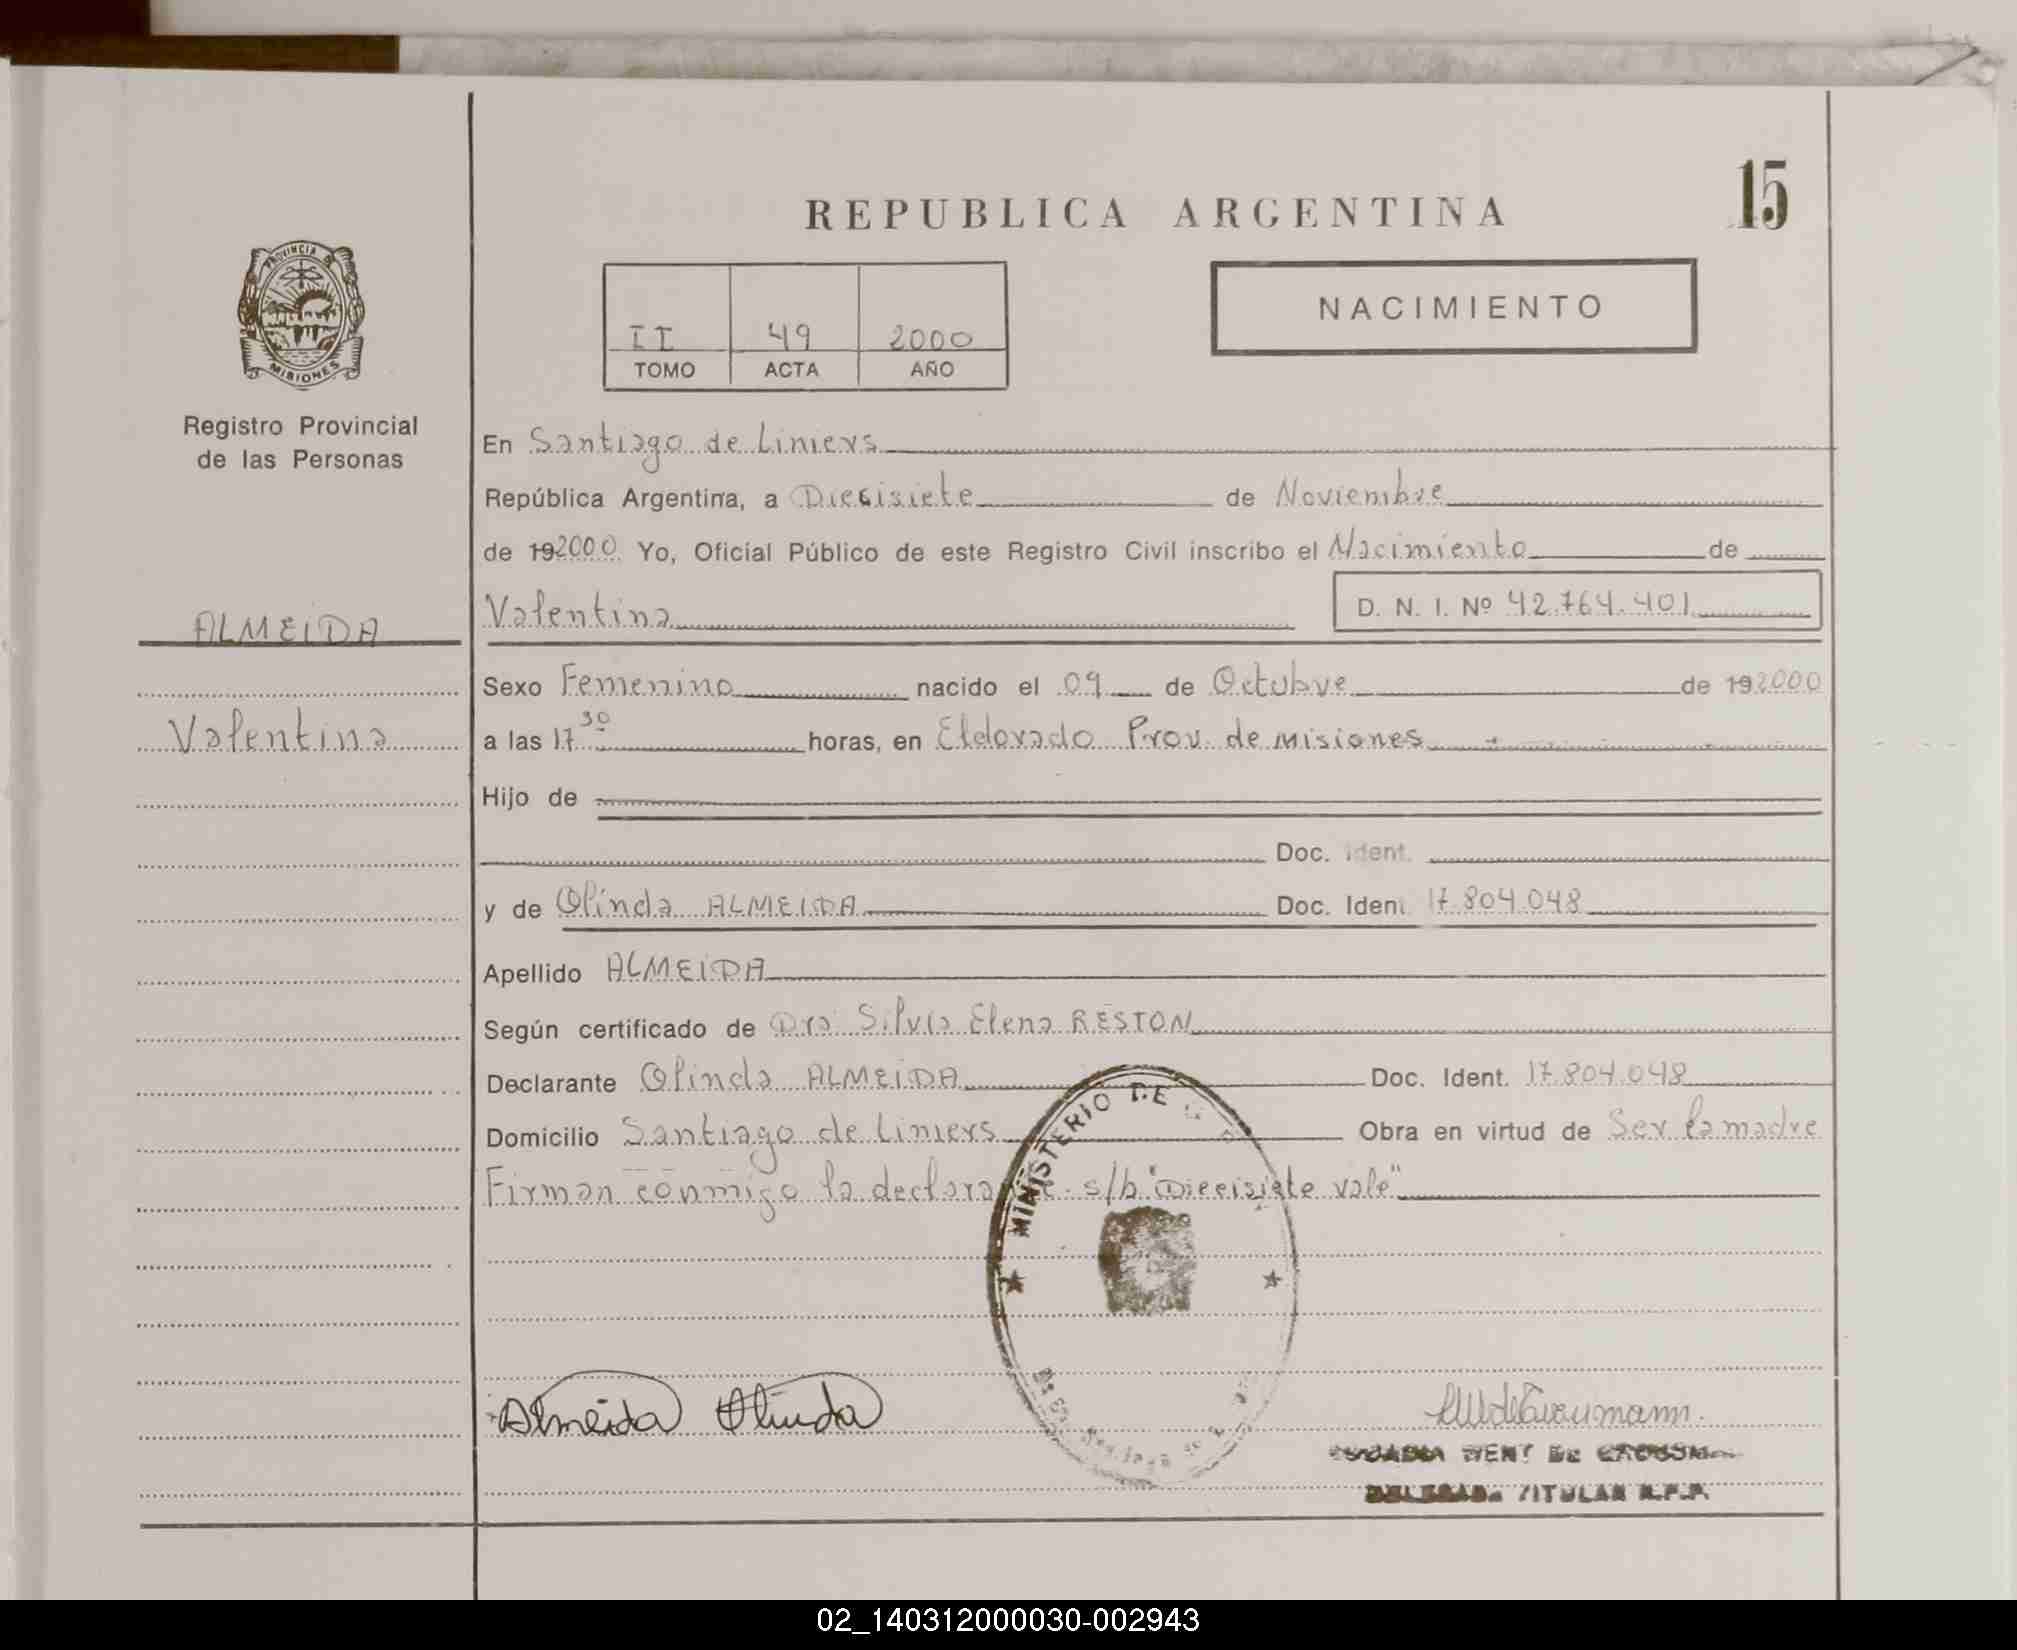 15
REPUBLICA ARGENTINA
PROVINCIA DE
MISIONES
NACIMIENTO
II 49 2000
TOMO ACTA AÑO
Registro Provincial
de las Personas
ALMEIDA
Valentina
En Santiago de Liniers
República Argentina, a Diecisiete de Noviembre
de 192000 Yo, Oficial Público de este Registro Civil inscribo el Nacimiento de
Valentina D. N. I. Nº 42.764.401
Sexo Femenino nacido el 09 de Octubre de 192000
a las 17 30 horas, en Eldorado Prov. de Misiones
Hijo de
Doc. Ident.
y de Olinda ALMEIDA Doc. Iden. 17.804.048
Apellido ALMEIDA
Según certificado de Dra Silvia Elena RESTON
Declarante Olinda ALMEIDA Doc. Ident. 17.804.048
Domicilio Santiago de Liniers Obra en virtud de Ser la madre
Firman conmigo la s/b "Diecisiete vale"
MINISTERIO DE
Almeida Olinda
WENT DE
TITULAR R.P.P.
02_140312000030-002943